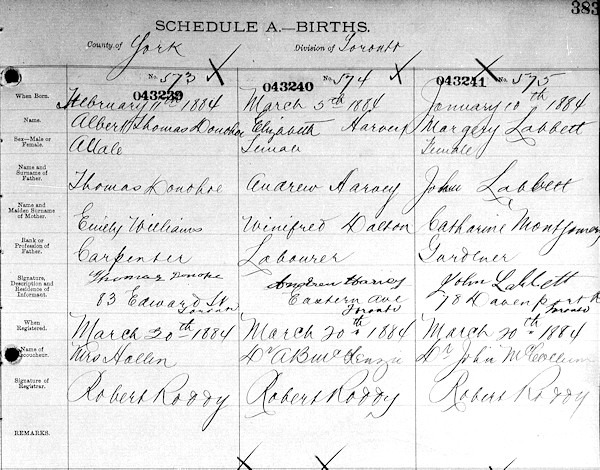 383
SCHEDULE A.—BIRTHS.
County of York Division of Toronto
No. 573 No. 574 No. 575
043239 043240 043241
When Born. February 11th 1884 March 5th 1884 January 10th 1884
Name. Albert Thomas Donohoe Elizabeth Harvey Margery Labbett
Sex—Male or Female. Male Female Female
Name and Surname of Father. Thomas Donohoe Andrew Harvey John Labbett
Name and Maiden Surname of Mother. Emily Williams Winifred Dalton Catharine Montgomery
Rank or Profession of Father. Carpenter Labourer Gardener
Signature, Description and Residence of Informant. Thomas Andrew Harvey John Labbett
83 Edward St Eastern Ave 78 Davenport R
Toronto Toronto Toronto
When Registered. March 20th 1884 March 20th 1884 March 20th 1884
Name of Accoucheur. Mrs Dr Dr John McCollum
Signature of Registrar. Robert Roddy Robert Roddy Robert Roddy
REMARKS.